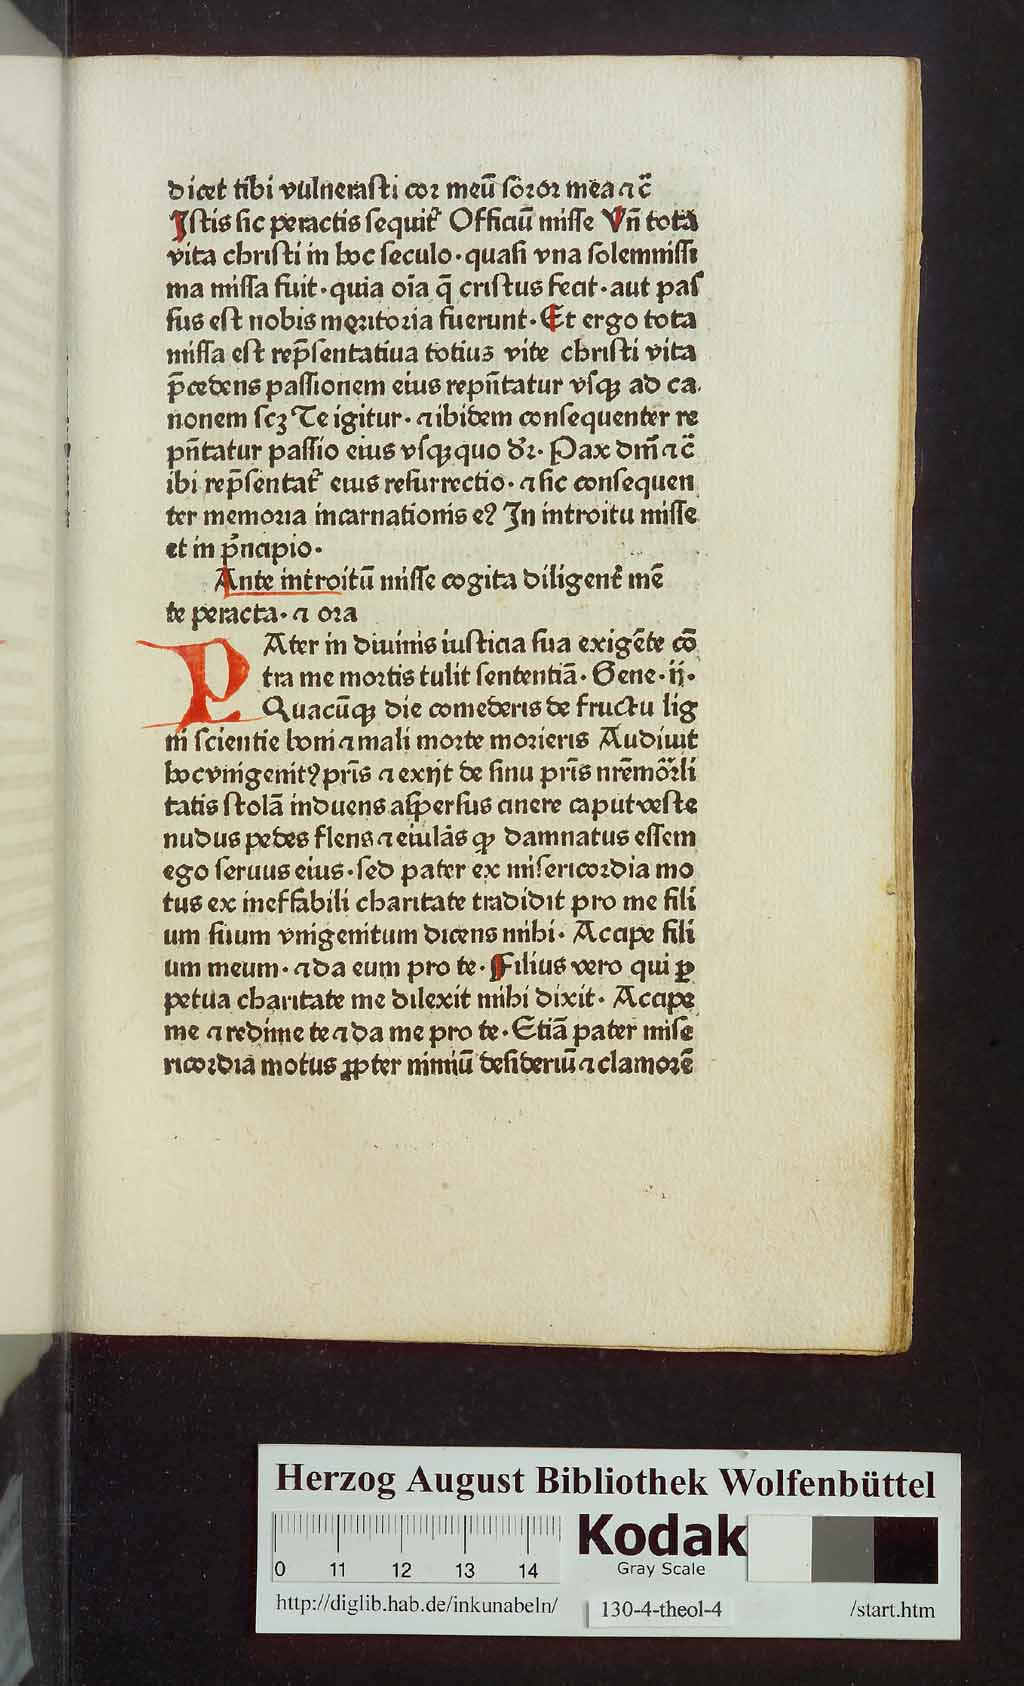 dicet tibi vulnerasti cor meū soror mea ⁊ c̄
Istis sic peractis sequit᷑ Officiū misse Vn̄ tota
vita christi in hoc seculo·quasi vna solemnissi
ma missa fuit·quia oīa q̄ cristus fecit·aut pas
sus est nobis meritoria fuerunt·Et ergo tota
missa est rep̄sentatiua totius vite christi vita
p̄cedens passionem eius repn̄tatur vsqꝫ ad ca.
nonem scꝫ Te igitur·⁊ ibidem consequenter re
pn̄tatur passio eius vsqꝫquo dr̄·Pax dm̄ ⁊ c̄
ibi rep̄sentat᷑ eius resurrectio·⁊ sic consequen
ter memoria incarnationis eꝰ In introitu misse
et in p̄ncipio·
Ante introitū misse cogita diligent᷑ mē
te peracta·⁊ ora
PAter in diuinis iusticia sua exigēte cō
tra me mortis tulit sententiā·Gene·ij·
Quacūqꝫ die comederis de fructu lig
ni scientie boni ⁊ mali morte morieris Audiuit
hoc vnigenitꝰ pr̄is ⁊ exijt de sinu pr̄is nr̄e mor̄li
tatis stolā induens aspersus cinere caput veste
nudus pedes flens ⁊ eiulās ꝙ damnatus essem
ego seruus eius·sed pater ex misericordia mo
tus ex ineffabili charitate tradidit pro me fili
um suum vnigenitum dicens mihi·Accipe fili
um meum·⁊ da eum pro te·Filius vero qui ꝑ
petua charitate me dilexit mihi dixit·Accipe
me ⁊ redime te ⁊ da me pro te·Etiā pater mise
ricordia motus ꝓpter nimiū desideriū ⁊ clamorē
Herzog August Bibliothek Wolfenbüttel
Kodak
Gray Scale
0 11 12 13 14
http://diglib.hab.de/inkunabeln/ 130-4-theol-4 /start.htm